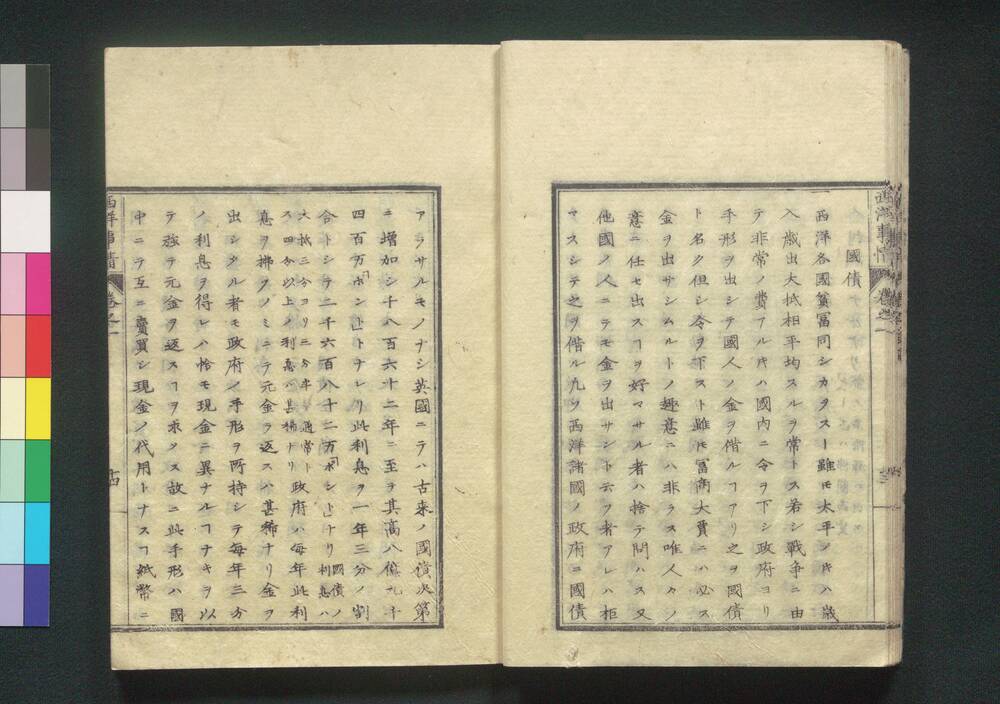 國債
一西洋各國貧冨同シカラスト雖𪜈太平ノ𪜈ハ歳
入歳出大抵相平均スルヲ常トス若シ戰争ニ由
テ非常ノ費アルキハ國内ニ令ヲ下シ政府ヨリ
手形ヲ出シテ國人ノ金ヲ借ルヿアリ之ヲ國債
ト名ク但シ令ヲ下スト雖𪜈冨商大賈ニハ必ス
金ヲ出サシムルトノ趣意ニハ非ラス唯人々ノ
意ニ任セ出スヿヲ好マサル者ハ捨テ問ハス又
他國ノ人ニテモ金ヲ出サント云フ者アレハ拒
マスシテ之ヲ借ル九ソ西洋諸國ノ政府ニ國債
西洋事情
卷之一
十三
アラサルモノナシ英國ニテハ古来ノ國債次第
ニ増加シ千八百六十二年ニ至ヲ其高八億九千
四百万「ポンド」トナレリ此利息ヲ一年三分ノ割
合トシテ二千六百八十二万「ポンド」ナリ國債ノ利息ハ
大抵三分ヨリ三分半ヲ通常トス四分以上ノ利息ハ甚稀ナリ政府ハ毎年此利
息ヲ拂フノミニテ元金ヲ返スハ甚稀ナリ金ヲ
出シタル者モ政府ノ手形ヲ所持シテ毎年三分
ノ利息ヲ得レハ恰モ現金ニ異ナルヿナキヲ以
テ強テ元金ヲ返スヿヲ求メス故ニ此手形ハ國
中ニテ互ニ賣買シ現金ノ代用トナスヿ紙幣ニ
西洋事情
卷之一
十四